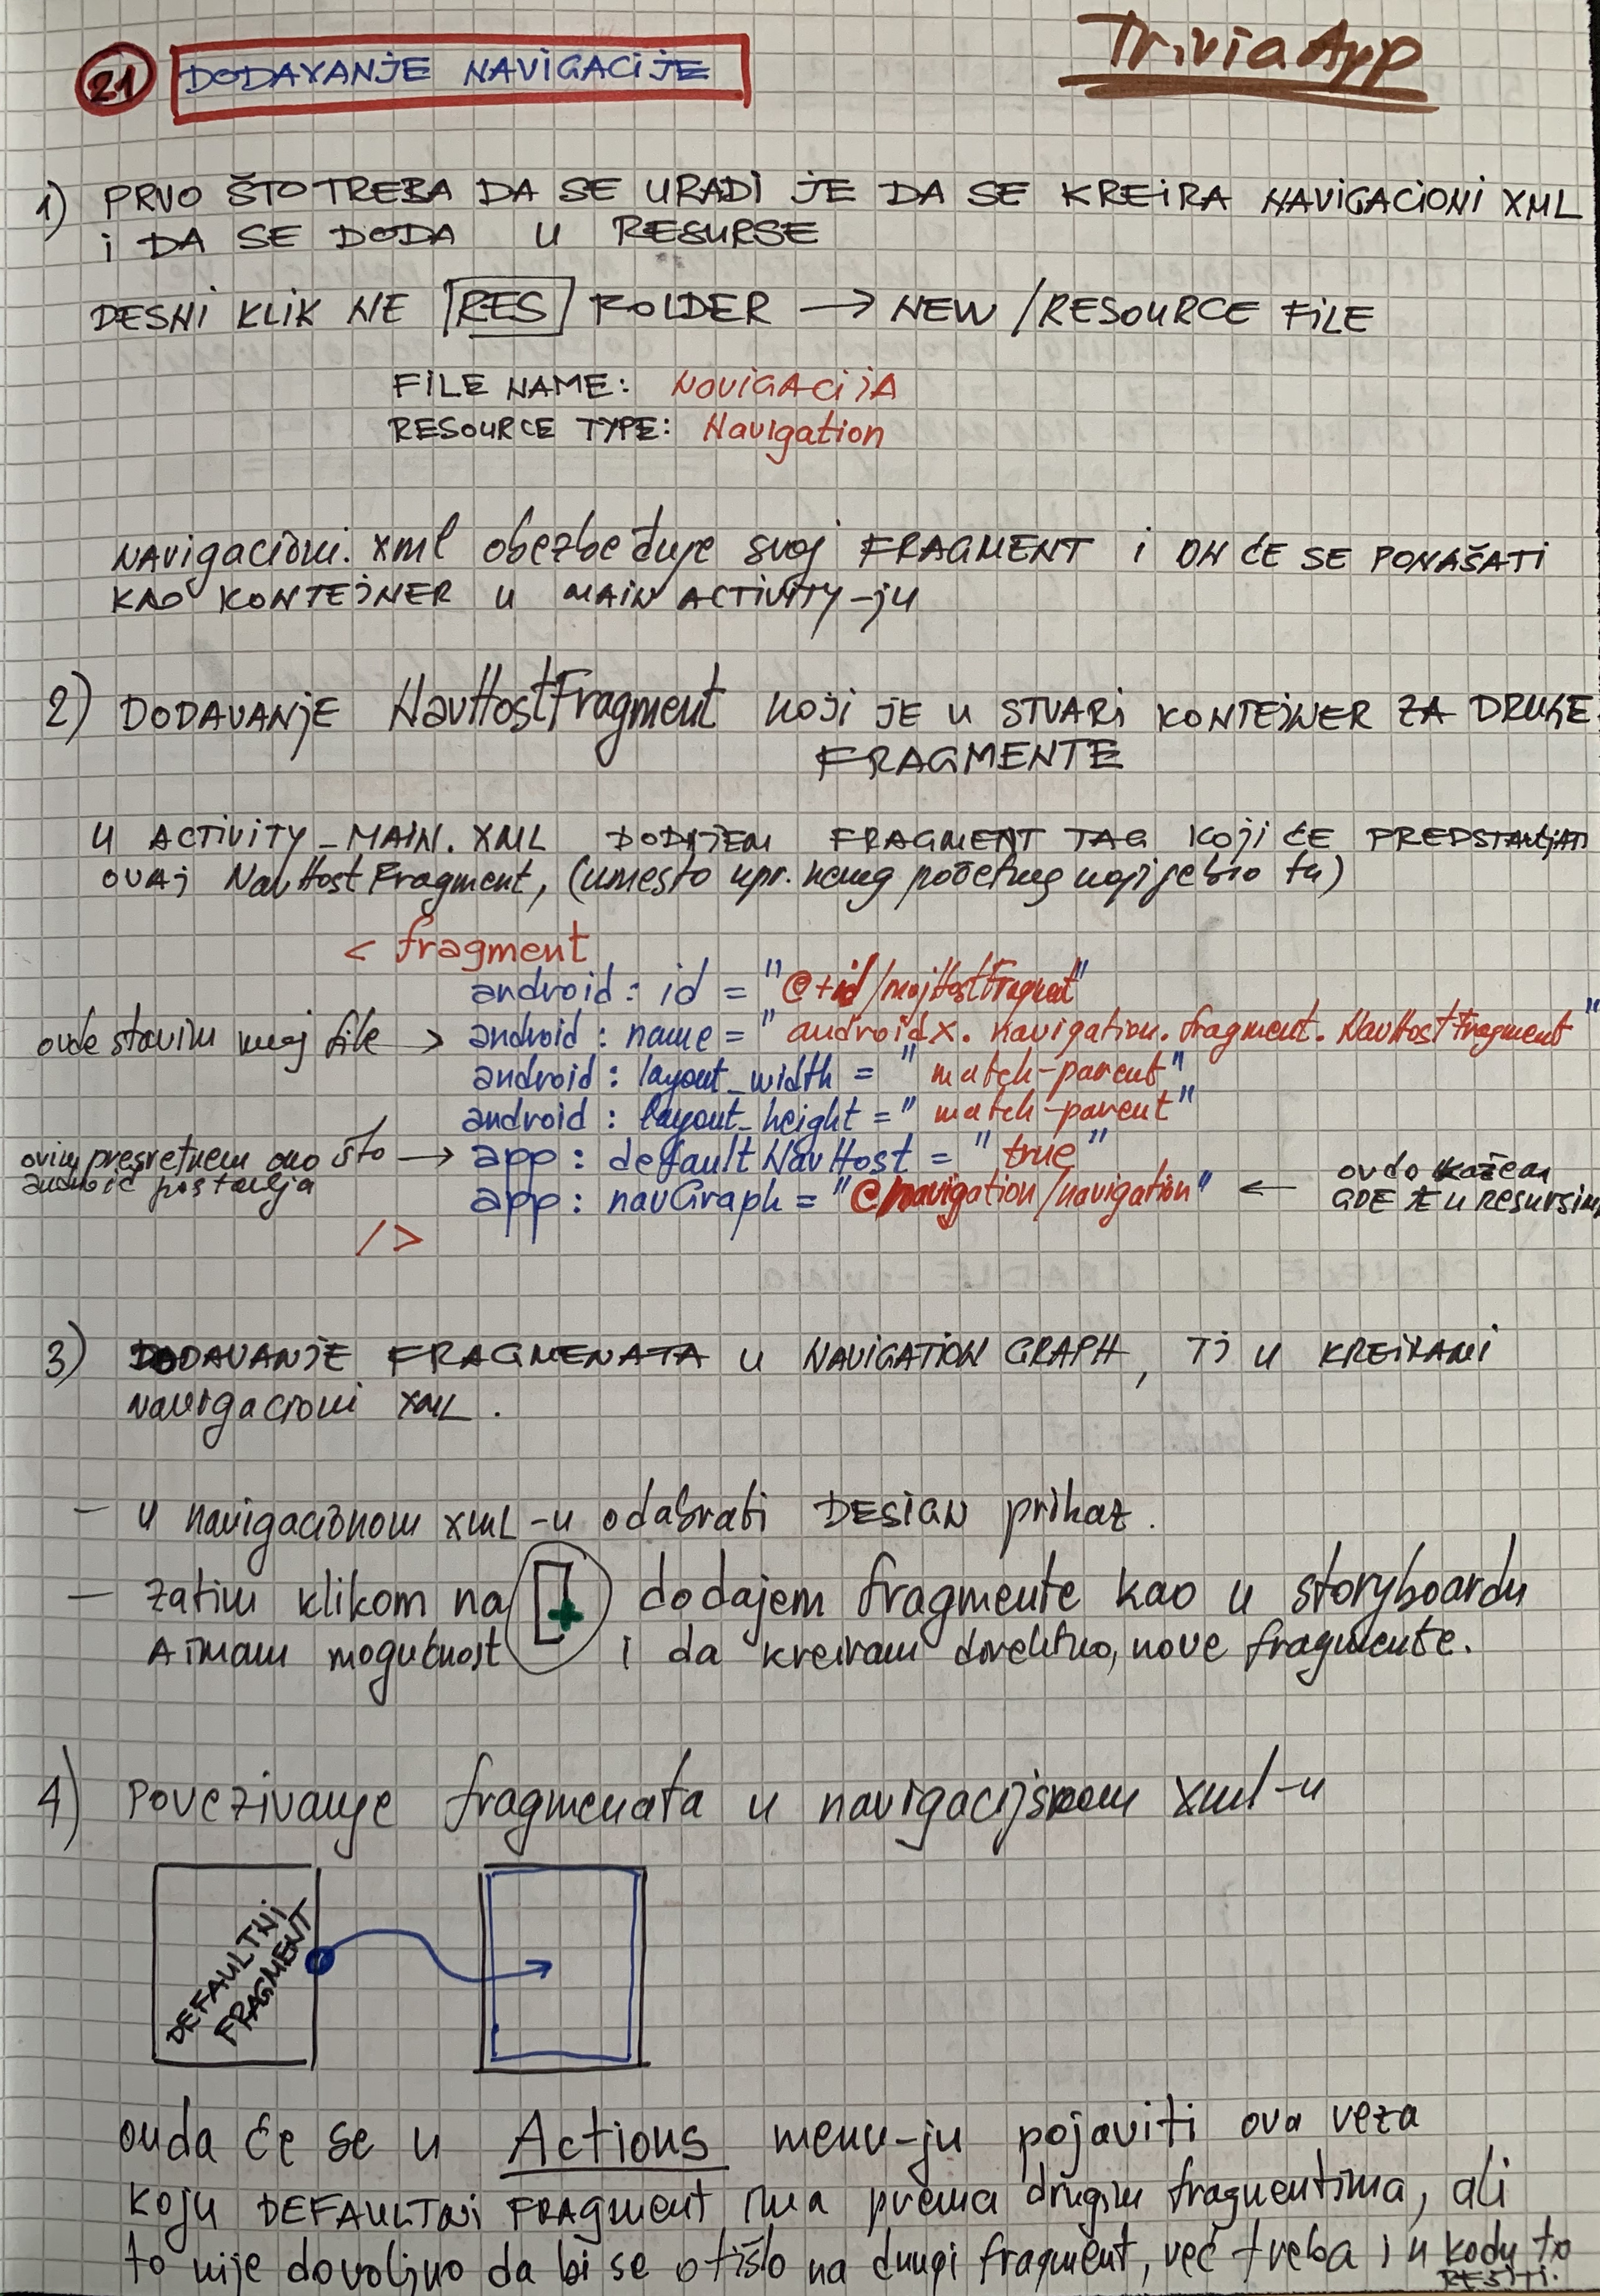 21 DODAVANJE NAVIGACIJE
TriviaApp
1) PRVO ŠTO TREBA DA SE URADI JE DA SE KREIRA NAVIGACIONI XML
i DA SE DODA U RESURSE
DESNI KLIK NE RES FOLDER → NEW / RESOURCE FILE
FILE NAME: NOVIGACIJA
RESOURCE TYPE: Navigation
NAVIGACIONI.xml obezbeđuje svoj FRAGMENT i ON ĆE SE PONAŠATI
KAO KONTEJNER U MAIN ACTIVITY-ju
2) DODAVANJE NavHostFragment KOJI JE U STVARI KONTEJNER ZA DRUGE
FRAGMENTE
U ACTIVITY_MAIN.XML DODAJEM FRAGMENT TAG KOJI ĆE PREDSTAVLJATI
OVAJ NavHostFragment, (umesto npr. nekog početnog koji je bio tu)
< fragment
android: id = "@+id/mojHostFragment"
ovde stavim moj file → android: name = "androidx.navigation.fragment.NavHostFragment"
android: layout_width = "match-parent"
android: layout_height = "match-parent"
ovim presretnem ono što → app: defaultNavHost = "true"
android postavlja
app: navGraph = "@navigation/navigation" ← ovdo kažem
GDE JE U RESURSIMA
/>
3) DODAVANJE FRAGMENATA U NAVIGATION GRAPH, TJ U KREIRANI
NAVIGACIONI XML.
- U navigacionom XML-u odabrati DESIGN prikaz.
- zatim klikom na + dodajem fragmente kao u storyboardu
A imam mogućnost i da kreiram direktno, nove fragmente.
4) Povezivanje fragmenata u navigacijskom xml-u
DEFAULTNI
FRAGMENT
onda će se u Actions menu-ju pojaviti ova veza
koju DEFAULTNI FRAGMENT ima prema drugim fragmentima, ali
to nije dovoljno da bi se otišlo na drugi fragment, već treba i u kodu to
REŠITI.